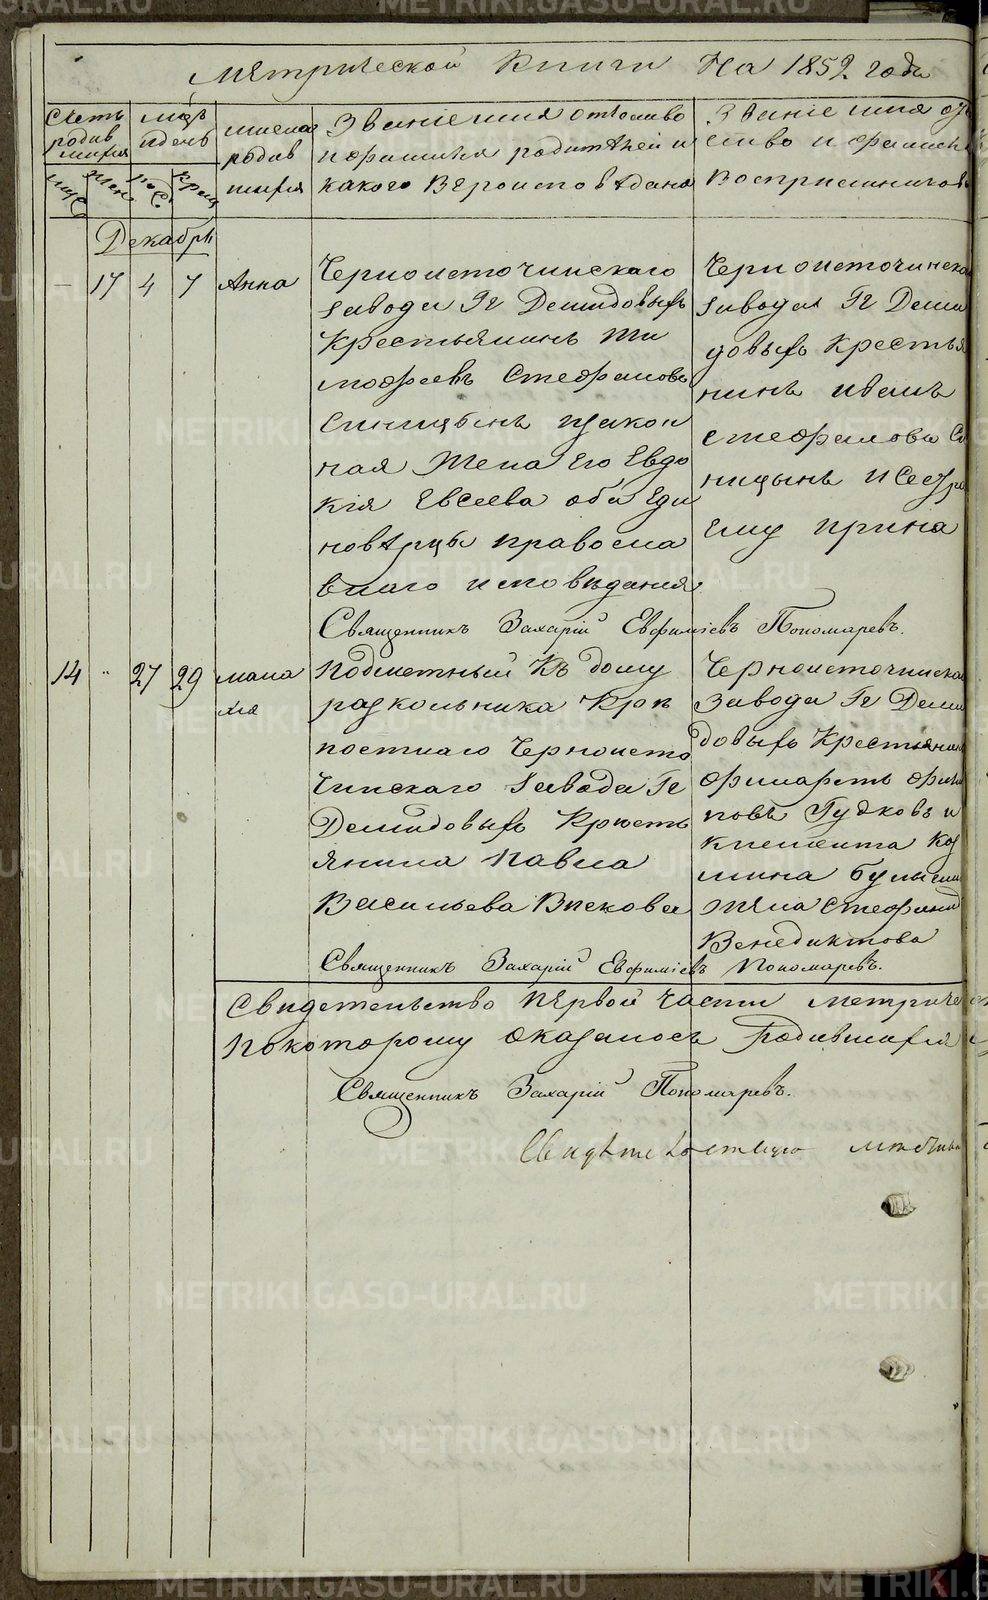 Метрической Книги На 1852 года
Счетъ родившихся
муж. жен.
мѣсяцъ и день
рож. крещ.
имена родившихся
Званіе имя отечество
и фамилія родителей и
какого Вероисповѣдана
Званіе имя оте
ство и фамилія
Воспріемниковъ
Декабрь
— 17 4 7 Анна
Черноисточинскаго
завода Гг Демидовыхъ
Крестьянинъ Ти
мофеевъ Стефановъ
Синицынъ изакон
ная Жена Его Евдо
кія Евсеева оба Еди
новѣрцы православ
внаго исповѣданія
Черноисточинска
завода Гг Деми
довыхъ Крестья
нинъ иванъ
стефановъ Си
ницынъ и Сестра
Ему ирина
Священникъ Захарій Евфиміевъ Пономаревъ.
14 " 27 29 мала
хія
Подметный Къ дому
раскольника Крѣ
постнаго Черноисто
чинскаго завода Гг
Демидовыхъ Кресть
янина Павла
Васильева Вискова
Черноисточинска
завода Гг Деми
довыхъ Крестьянинъ
филаретъ фили
повъ Гудковъ и
Климента Коз
мина
жена Стефанид
Венедиктова
Священникъ Захарій Евфиміевъ Пономаревъ.
Свидетельство Первой части метриче
покоторому оказалось Родившихся
Священникъ Захарій Пономаревъ.
METRIKI.GASO-URAL.RU